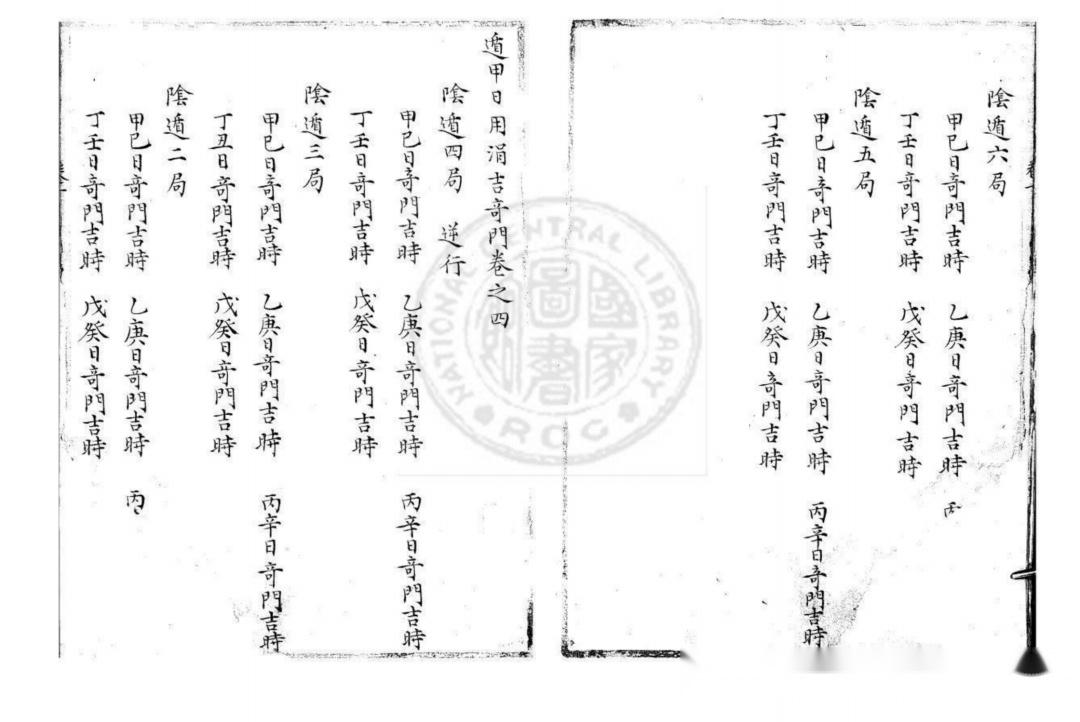 陰遁六局
甲己日奇門吉時 乙庚日奇門吉時 丙
丁壬日奇門吉時 戊癸日奇門吉時
陰遁五局
甲己日奇門吉時 乙庚日奇門吉時 丙辛日奇門吉時
丁壬日奇門吉時 戊癸日奇門吉時
遁甲日用涓吉奇門卷之四
陰遁四局 逆行
甲己日奇門吉時 乙庚日奇門吉時 丙辛日奇門吉時
丁壬日奇門吉時 戊癸日奇門吉時
陰遁三局
甲己日奇門吉時 乙庚日奇門吉時 丙辛日奇門吉時
丁丑日奇門吉時 戊癸日奇門吉時
陰遁二局
甲己日奇門吉時 乙庚日奇門吉時 丙
丁壬日奇門吉時 戊癸日奇門吉時
NATIONAL CENTRAL LIBRARY
ROC
國家圖書館